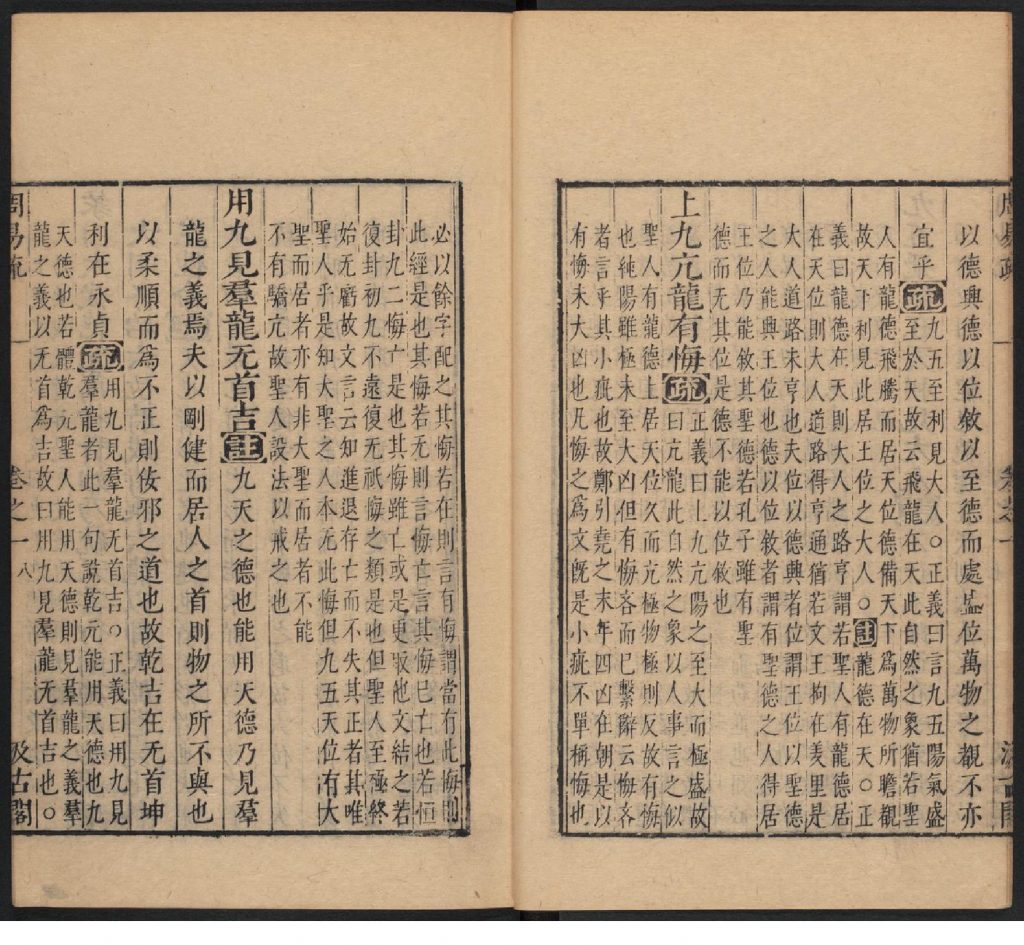 以德興德以位敘以至德而處盛位萬物之覩不亦
宜乎疏九五至利見大人○正義曰言九五陽氣盛
至於天故云飛龍在天此自然之象猶若聖
人有龍德飛騰而居天位德備天下爲萬物所瞻覩
故天下利見此居王位之大人○註龍德在天○正
義曰龍德在天則大人之路亨謂若聖人有龍德居
在天位則大人道路得亨通猶若文王拘在羑里是
大人道路未亨也夫位以德興者位謂王位以聖德
之人能興王位也德以位敘者謂有聖德之人得居
王位乃能敘其聖德若孔子雖有聖
德而无其位是德不能以位敘也
上九亢龍有悔疏正義曰上九亢陽之至大而極盛故
曰亢龍此自然之象以人事言之似
聖人有龍德上居天位久而亢極物極則反故有悔
也純陽雖極未至大凶但有悔吝而已繫辭云悔吝
者言乎其小疵也故鄭引堯之末年四凶在朝是以
有悔未大凶也凡悔之爲文旣是小疵不單稱悔也
必以餘字配之其悔若在則言有悔謂當有此悔則
此經是也其悔若无則言悔亡言其悔已亡也若恒
卦九二悔亡是也其悔雖亡或是更取他文結之若
復卦初九不遠復无祇悔之類是也但聖人至極終
始无虧故文言云知進退存亡而不失其正者其唯
聖人乎是知大聖之人本无此悔但九五天位有大
聖而居者亦有非大聖而居者不能
不有驕亢故聖人設法以戒之也
用九見羣龍无首吉註九天之德也能用天德乃見羣
龍之義焉夫以剛健而居人之首則物之所不與也
以柔順而爲不正則佞邪之道也故乾吉在无首坤
利在永貞疏用九見羣龍无首吉○正義曰用九見
羣龍者此一句說乾元能用天德也九
天德也若體乾元聖人能用天德則見羣龍之義羣
龍之義以无首爲吉故曰用九見羣龍无首吉也○
周易疏 卷之一 八 汲古閣